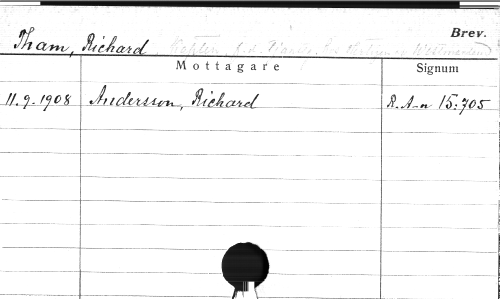 Brev.
Tham, Richard
Mottagare Signum
11.9.1908 Andersson, Richard R.A-n 15:705